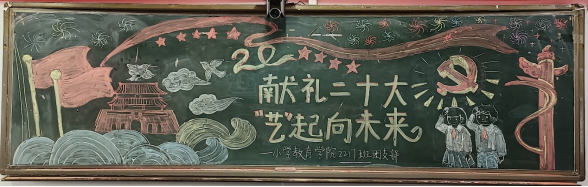 20
献礼二十大
"艺"起向未来
—小学教育学院2217班团支部